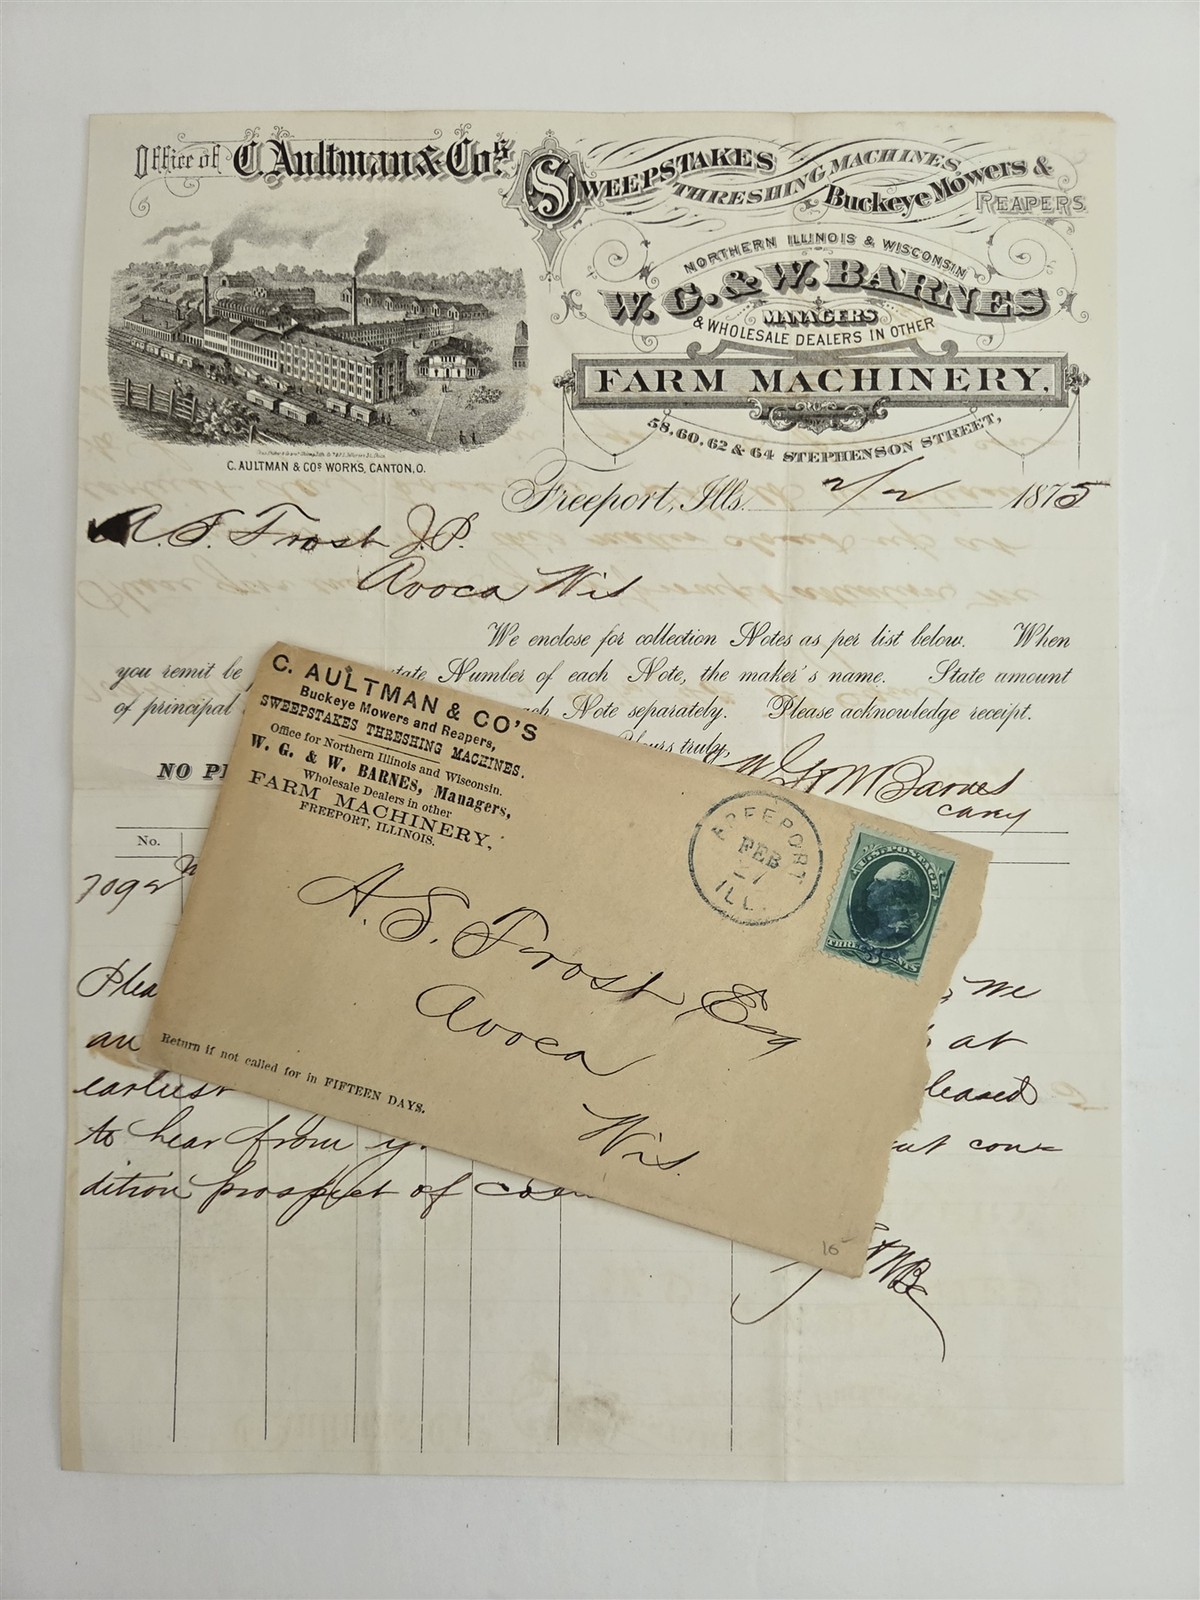 Office of C. Aultman & Co's
SWEEPSTAKES
THRESHING MACHINES,
Buckeye Mowers &
REAPERS
NORTHERN ILLINOIS & WISCONSIN
W. G. & W. BARNES
MANAGERS
& WHOLESALE DEALERS IN OTHER
FARM MACHINERY,
58, 60, 62 & 64 STEPHENSON STREET,
C. AULTMAN & COS WORKS, CANTON, O.
Freeport, Ills. 2/2 1875
A. S. Frost J.P.
Avoca Wis
We enclose for collection Notes as per list below. When
you remit be state Number of each Note, the maker's name. State amount
of principal each Note separately. Please acknowledge receipt.
Yours truly,
W G & W Barnes
NO
No.
7092
Plea we
an at
earliest leased
to hear from y con=
dition prospect of
C. AULTMAN & CO'S
Buckeye Mowers and Reapers,
SWEEPSTAKES THRESHING MACHINES.
Office for Northern Illinois and Wisconsin.
W. G. & W. BARNES, Managers,
Wholesale Dealers in other
FARM MACHINERY,
FREEPORT, ILLINOIS.
FREEPORT
FEB
27
ILL.
U.S. POSTAGE
THREE CENTS
3
A. S. Frost Esq
Avoca
Wis.
Return if not called for in FIFTEEN DAYS.
16